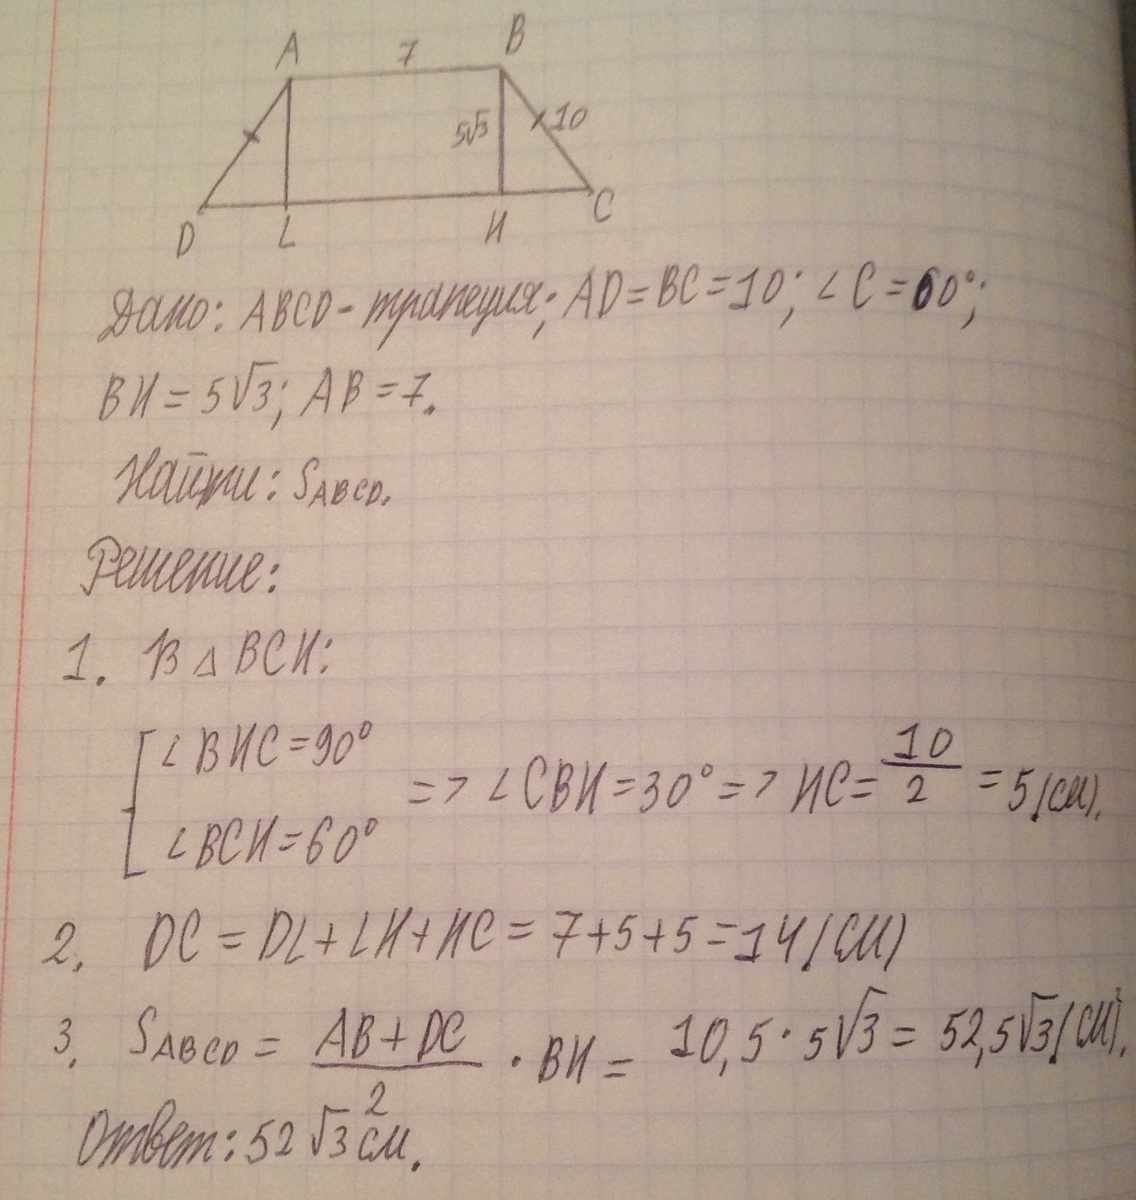 A 7 B
5√3 10
D L H C
Дано: ABCD - трапеция; AD = BC = 10; ∠C = 60°;
BH = 5√3; AB = 7.
Найти: S_ABCD.
Решение:
1. В △ BCH:
[ ∠BHC = 90°
∠BCH = 60° => ∠CBH = 30° => HC = 10/2 = 5 (см).
2. DC = DL + LH + HC = 7 + 5 + 5 = 14 (см)
3. S_ABCD = (AB + DC)/2 · BH = 10,5 · 5√3 = 52,5√3 (см²).
Ответ: 52 √3 см².